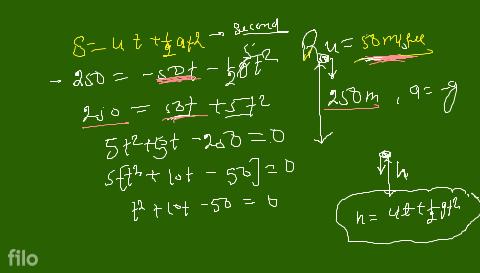 S = ut + 1/2 at² → second
→ 250 = -50t - 1/2 10t²
250 = 50t + 5t²
5t² + 5t - 250 = 0
5[t² + 10t - 50] = 0
t² + 10t - 50 = 0
u = 50m/sec
250m , a = -g
h
h = ut + 1/2 gt²
filo